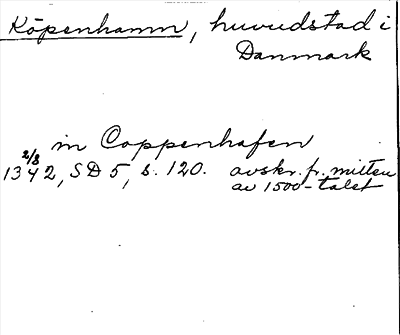 Köpenhamn, huvudstad i
Danmark
in Coppenhafen
1342 2/8, SD 5, s. 120. avskr. fr. mitten
av 1500-talet